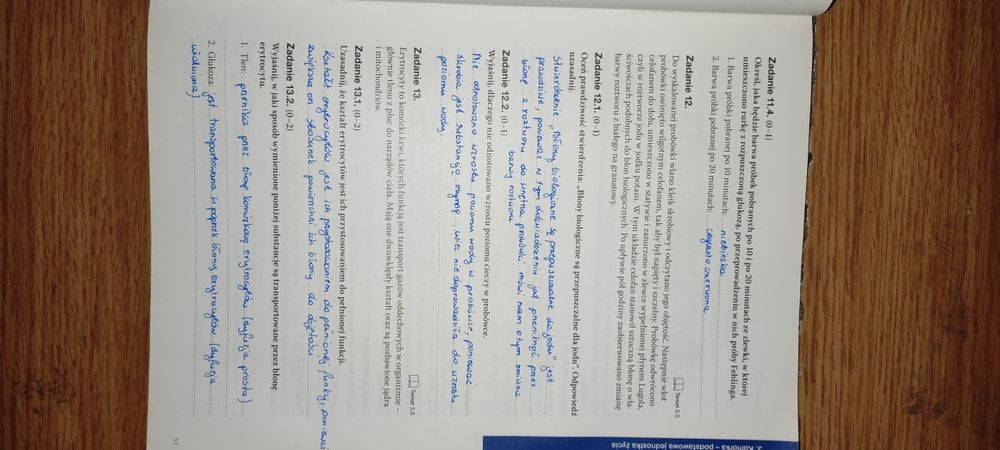 3. Komórka – podstawowa jednostka życia
Zadanie 11.4. (0–1)
Określ, jaka będzie barwa próbek pobranych po 10 i po 20 minutach ze zlewki, w której
umieszczono rurkę z rozpuszczoną glukozą, po przeprowadzeniu w nich próby Fehlinga.
1. Barwa próbki pobranej po 10 minutach: niebieska
2. Barwa próbki pobranej po 20 minutach: ceglasto czerwona
Zadanie 12.
Temat 3.3.
Do wyskalowanej probówki wlano kleik skrobiowy i odczytano jego objętość. Następnie wlot
probówki owinięto wilgotnym celofanem, tak aby był napięty i szczelny. Probówkę odwrócono
celofanem do dołu, umieszczono w statywie i zanurzono w zlewce wypełnionej płynem Lugola,
czyli w roztworze jodu w jodku potasu. W tym układzie celofan stanowił sztuczną błonę o wła-
ściwościach podobnych do błon biologicznych. Po upływie pół godziny zaobserwowano zmianę
barwy roztworu z białego na granatowy.
Zadanie 12.1. (0–1)
Oceń prawdziwość stwierdzenia: „Błony biologiczne są przepuszczalne dla jodu”. Odpowiedź
uzasadnij.
Stwierdzenie „Błony biologiczne są przepuszczalne dla jodu” jest
prawdziwe, ponieważ w tym doświadczeniu jod przeniknął przez
błonę z roztworu do wnętrza probówki mówi nam o tym zmiana
barwy roztworu
Zadanie 12.2. (0–1)
Wyjaśnij, dlaczego nie odnotowano wzrostu poziomu cieczy w probówce.
Nie odnotowano wzrostu poziomu wody w probówce, ponieważ
skrobia jest substancją czynną, więc nie doprowadziła do wzrostu
poziomu wody
Zadanie 13.
Temat 3.3.
Erytrocyty to komórki krwi, których funkcją jest transport gazów oddechowych w organizmie –
głównie tlenu z płuc do narządów ciała. Mają one dwuwklęsły kształt oraz są pozbawione jądra
i mitochondriów.
Zadanie 13.1. (0–2)
Uzasadnij, że kształt erytrocytów jest ich przystosowaniem do pełnionej funkcji.
Kształt erytrocytów jest ich przystosowaniem do pełnionej funkcji, ponieważ
zwiększa on stosunek powierzchni ich błony do objętości
Zadanie 13.2. (0–2)
Wyjaśnij, w jaki sposób wymienione poniżej substancje są transportowane przez błonę
erytrocytu.
1. Tlen: przenika przez błonę komórkową erytrocytów (dyfuzja prosta)
2. Glukoza: jest transportowana w poprzek błony erytrocytów (dyfuzja
ułatwiona)
51